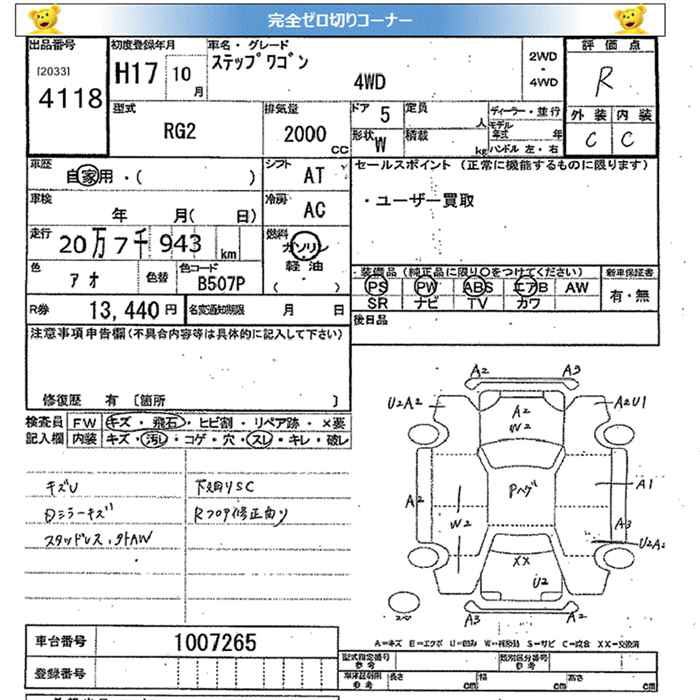 完全ゼロ切りコーナー
出品番号
[2033]
4118
初度登録年月
H17 10月
車名・グレード
ステップワゴン
4WD
2WD
・
4WD
評価点
R
外装 内装
C C
型式
RG2
排気量
2000 cc
ドア 5
形状 W
定員 人
積載 kg
ディーラー・並行
モデル年式 年
ハンドル 左・右
車歴
自家用・( )
シフト
AT
セールスポイント (正常に機能するものに限ります)
・ユーザー買取
車検
年 月( 日)
冷房
AC
走行
20万7千943 km
燃料
ガソリン
軽油
( )
色
アオ
色替
色コード
B507P
装備品(純正品に限り〇をつけてください)
PS PW ABS エアB AW
SR ナビ TV カワ
新車保証書
有・無
R券 13,440 円
名変通知期限 月 日
後日品
注意事項申告欄(不具合内容等は具体的に記入して下さい)
修復歴 有 [箇所 ]
検査員記入欄
FW キズ・飛石・ヒビ割・リペア跡・×要
内装 キズ・汚レ・コゲ・穴・スレ・キレ・破レ
キズU
下廻りSC
ミラーキズ
Rフロア修正有り
スタッドレス.外AW
A2 A3
U2A2 A2 A2U1
W2
Pヘゲ
A2 A1
W2 A3
U2A2
XX
U2
A3 A2
A=キズ E=エクボ U=凹み S=サビ XX=交換済
車台番号
1007265
登録番号
型式指定番号
参考
類別区分番号
参考
長さ cm 幅 cm 高さ cm